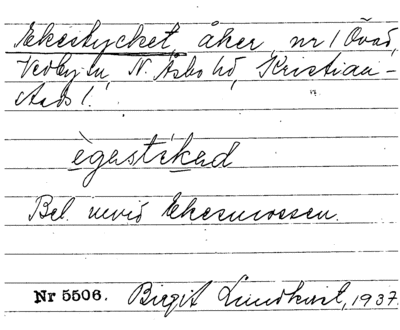 Ekestycket, åker, nr 1 Övad,
Vedby sn, N. Åsbo hd, Kristian-
stads l.
ègastìkad
Bel. invid Ekesmossen.
Nr 5506. Birgit Lundkvist, 1937.